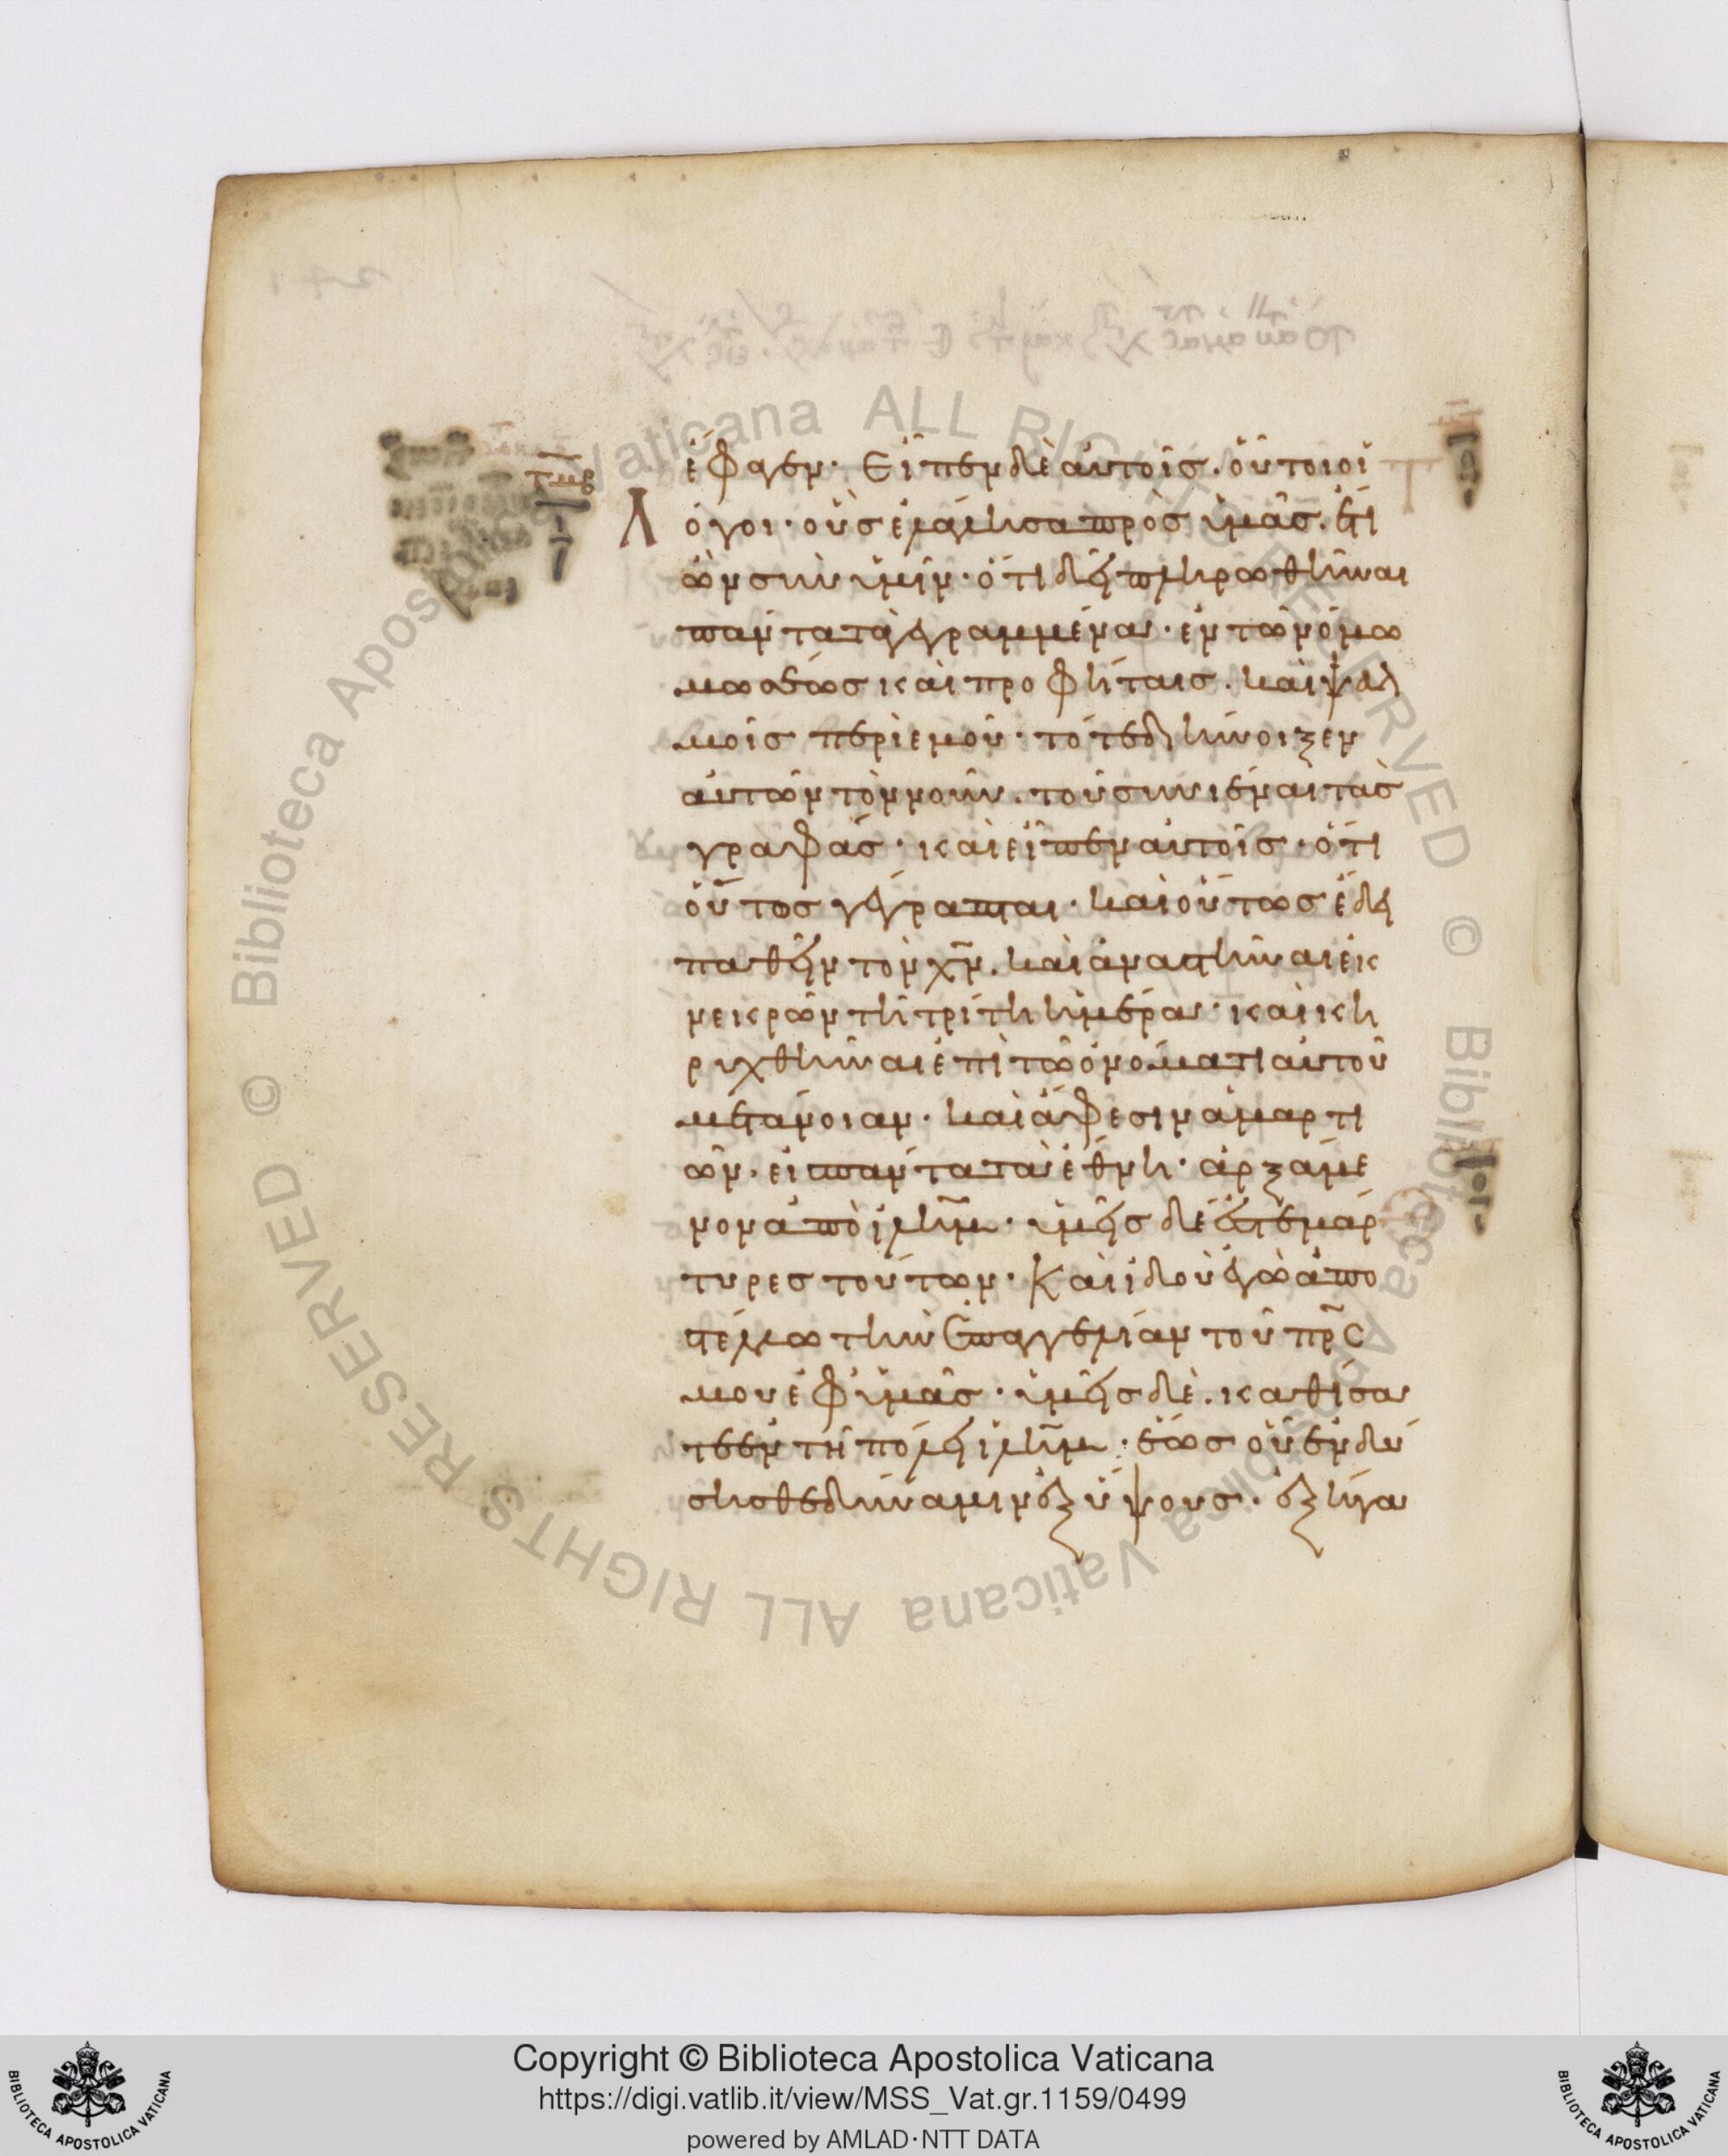 έφαγεν· Εἶπεν δὲ αὐτοῖς. οὗτοι οἱ
λόγοι· οὓς ἐλάλησα πρὸς ὑμᾶς. ἔτι
ὢν σὺν ὑμῖν· ὅτι δεῖ πληρωθῆναι
πάντα τὰ γεγραμμένα· ἐν τῶ νόμω
μωσέως καὶ προφήταις. καὶ ψαλ
μοῖς περὶ ἐμοῦ· τότε διήνοιξεν
αὐτῶν τὸν νοῦν. τοῦ συνιέναι τὰς
γραφάς· καὶ εἶπεν αὐτοῖς· ὅτι
οὕτως γέγραπται· καὶ οὕτως ἔδει
παθεῖν τὸν χν̄. καὶ ἀναστῆναι ἐκ
νεκρῶν τῆ τρίτη ἡμέρα· καὶ κη
ρυχθῆναι ἐπὶ τῶ ὀνόματι αὐτοῦ
μετάνοιαν· καὶ ἄφεσιν ἁμαρτι
ῶν. εἰς πάντα τὰ ἔθνη· ἀρξάμε
νον ἀπὸ ἱλη̄μ· ὑμεῖς δέ ἐστε μάρ
τυρες τούτων· Καὶ ἰδοὺ ἐγὼ ἀπο
στέλλω τὴν ἐπαγγελίαν τοῦ πρ̄ς
μου ἐφ' ὑμᾶς· ὑμεῖς δὲ. καθίσα
τε ἐν τῆ πόλει ἱλη̄μ· ἕως οὗ ἐνδύ
σησθε δύναμιν ἐξ ὕψους. ἐξήγα
Copyright © Biblioteca Apostolica Vaticana
https://digi.vatlib.it/view/MSS_Vat.gr.1159/0499
powered by AMLAD·NTT DATA